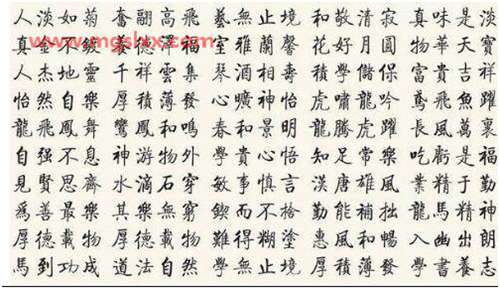 人淡如菊 奮翮高飛 藝無止境 和敬清寂 真味是淡
www.mgslxx.com
不 德 福 室雅蘭馨 花好月圓 物華天寶
人杰地靈 千祥雲集 琴 相壽 積學儲 富貴吉祥
怡然自樂 厚積薄發 心曠神怡 虎嘯龍吟 鳶飛魚躍
龍飛鳳舞 鸞鳳和鳴 春和景明 龍騰虎躍 長風萬裏
自强不息 神游物外 學貴心悟 知足常樂 吃虧是福
見賢思齊 水滴石穿 敏事慎言 漢唐雄風 業精于勤
爲善最樂 其樂無窮 鍥而不捨 勤能補拙 龍馬精神
厚德載物 厚德載物 難得糊塗 惠風和暢 入幽出朗
馬到功成 道法自然 學無止境 厚積薄發 學書養志